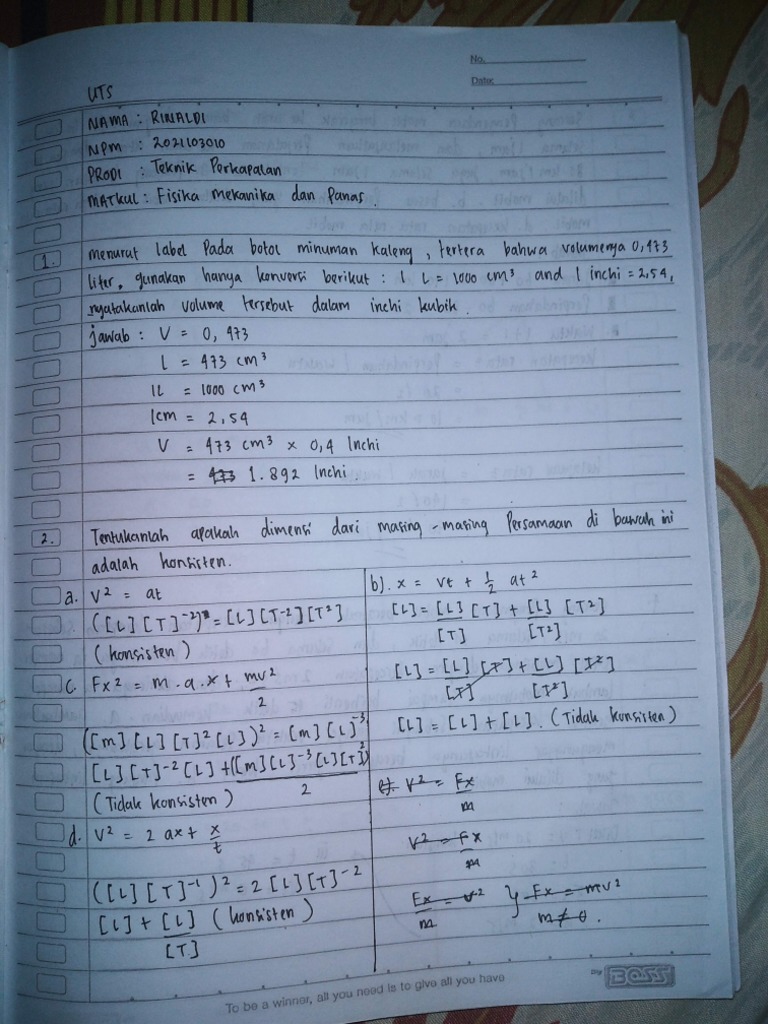 No.
Date:
UTS
NAMA : RINALDI
NPM : 2021103010
PRODI : Teknik Perkapalan
MATKUL : Fisika mekanika dan Panas.
1. menurut label Pada botol minuman kaleng, tertera bahwa volumenya 0,473
liter, gunakan hanya konversi berikut : 1 L = 1000 cm³ and 1 inchi = 2,54,
nyatakanlah volume tersebut dalam inchi kubik.
jawab : V = 0,473
L = 473 cm³
1L = 1000 cm³
1cm = 2,54
V = 473 cm³ x 0,4 Inchi
= 473 1.892 Inchi.
2. Tentukanlah apakah dimensi dari masing-masing Persamaan di bawah ini
adalah konsisten.
a. V² = at
([L][T]⁻²)² = [L][T⁻²][T²]
(konsisten)
b). x = vt + 1/2 at²
[L] = [L]/[T] [T] + [L]/[T²] [T²]
[L] = [L]/[T] [T] + [L]/[T²] [T²]
[L] = [L] + [L]. (Tidak konsisten)
c. Fx² = m.a.x + mv²/2
([m][L][T]²[L])² = [m][L]⁻³
[L][T]⁻²[L] + ([m][L]⁻³[L][T]²)/2
(Tidak konsisten)
d. V² = 2 ax + x/t
([L][T]⁻¹)² = 2[L][T]⁻²
[L] + [L]/[T] (konsisten)
e). V² = Fx/m
V² = Fx/m
Fx/m = v² } Fx = mv²
m ≠ 0.
To be a winner, all you need is to give all you have
By BOSS